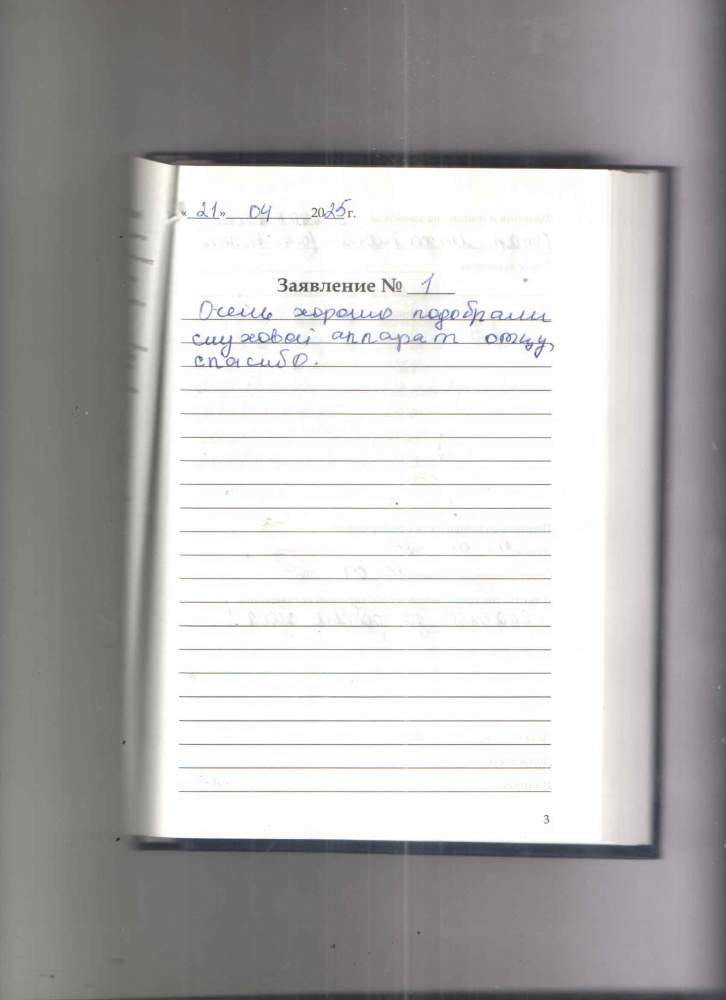 «21» 04 2025 г.
Заявление № 1
Очень хорошо подобрали
слуховой аппарат отцу,
спасибо.
3